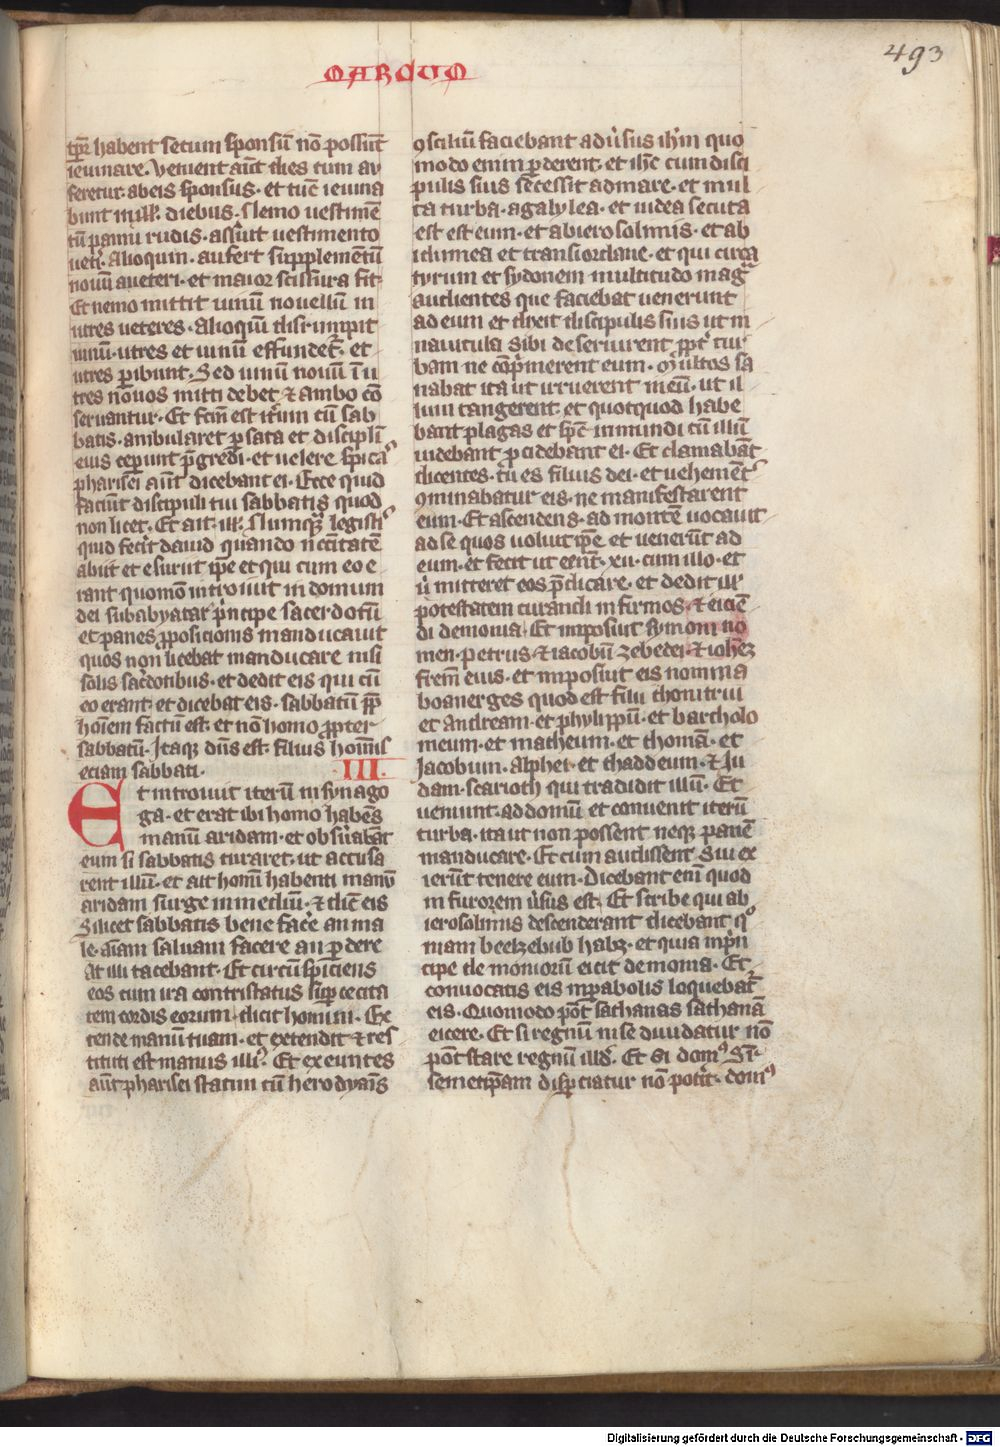 MARCUM
493
tp̄r habent secum sponsū nō possūt
ieiunare. Venient aūt dies cum au
feretur. ab eis sponsus. et tūc ieiuna
bunt in illꝭ diebus. Nemo uestimē
tū panni rudis. assuit uestimento
uetī. Alioquin. aufert supplemētū
nouū a ueteri. et maior scissura fit
Et nemo mittit uinū nouellū in
utres ueteres. Alioquī disrumpit
uinū. utres et uinū effundet᷑. et
utres ꝑibunt. Sed uinū nouū ī u
tres nouos mitti debet ⁊ ambo cō
seruantur. Et fcm̄ est itꝰum cū sab
batis. ambularet ꝑ sata et discipli
eius ceperunt p̄gredi. et uelere spicas
pharisei aūt dicebant ei. Ecce quid
faciūt discipuli tui sabbatis quod
non licet. Et ait. illꝭ. Numqꝫ legistis
quid fecit dauid quando nccitatē
abuit et esuriit ip̄e et qui cum eo e
rant quomō introiuit in domum
dei sub abyatar pͥncipe sacerdotū
et panes ꝓposicionis manducauit
quos non licebat manducare nisi
solis sac̄dotibus. et dedit eis qui cū
eo erant. et dicebat eis. sabbatū ꝓp
hoīem factū est. et nō homo ꝓpter
sabbatū. Itaqꝫ dn̄s est. filius hominis
eciam sabbati. III.
Et introiuit iterū in synago
ga. et erat ibi homo habēs
manū aridam. et obsͥuabāt
eum si sabbatis curaret. ut accusa
rent illū. et ait homī habenti manū
aridam surge in mediū. ⁊ dic̄ eis
Si licet sabbatis bene fac̄e an ma
le. aīam saluam facere an ꝑdere
At illi tacebant. Et circūspiciens
eos cum ira contristatus suꝑ cecita
tem cordis eorum. dicit homini. Ex
tende manū tuam. et extendit ⁊ res
tituti est manus illiꝰ. Et exeuntes
aūt pharisei statim cū herodyanis
ꝯsciliū faciebant adūsus ih̄m quo
modo eum ꝑderent. et ih̄c cum disci
pulis suis secessit ad mare. et mul
ta turba. a galylea. et iudea secuta
est est eum. et ab ierosolimis. et ab
idumea et transiordane. et qui circa
tyrum et sydonem multitudo magͣ
audientes que faciebat uenerunt
ad eum et dixit discipulis suis ut in
nauicula sibi deseruirent ꝓpt̄ tur
bam ne cōpͥmerent eum. Multos sa
nabat ita ut irruerent in eū. ut il
lum tangerent. et quotquod habe
bant plagas et sp̄c inmundi cū illū
uidebant ꝓcidebant ei. Et clamabāt
dicentes. tu es filius dei. et uehement̄
ꝯminabatur eis. ne manifestarent
eum. Et ascendens. ad montē uocauit
ad se quos uoluit ip̄e et uenerūt ad
eum. et fecit ut eēnt. xii. cum illo. et
ut mitteret eos p̄dicare. et dedit illꝭ
potestatem curandi infirmos. ⁊ eiciē
di demonia. Et imposuit symoni no
men. petrus. ⁊ iacobū zebedei. ⁊ ioh̄ez
frem̄ eius. et imposuit eis nomina
boanerges quod est filii thonitrui
et Andream. et phylippū. et bartholo
meum. et matheum. et thomā. et
Iacobum. Alphei. et thaddeum. ⁊ Iu
dam. scarioth qui tradidit illū. Et
ueniunt. ad domū et conuenit iterū
turba. ita ut non possent neqꝫ panē
manducare. Et cum audissent sui ex
ierūt tenere eum. Dicebant enī quod
in furorem ūsus est. Et scribe qui ab
ierosolimis descenderant dicebant qͦ
niam beelzebub habꝫ. et quia in pͥn
cipe demoniorū eicit demonia. Et
conuocatis eis in ꝑabolis loquebat᷑
eis. Quomodo pōt sathanas sathanā
eicere. Et si regnū in se diuidatur nō
pōt stare regnū illd̄. Et si domꝰ sū
semetip̄am disꝑciatur nō potit. domꝰ
Digitalisierung gefördert durch die Deutsche Forschungsgemeinschaft - DFG